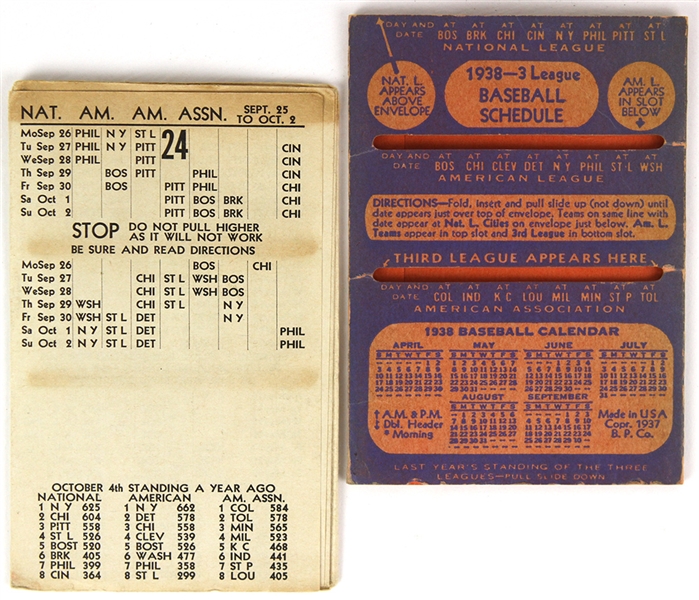 NAT. AM. AM. ASSN. SEPT. 25 TO OCT. 2
MoSep 26 PHIL N Y ST L 24
Tu Sep 27 PHIL N Y PITT CIN
WeSep 28 PHIL PITT CIN
Th Sep 29 BOS PITT PHIL CIN
Fr Sep 30 BOS PITT PHIL CHI
Sa Oct 1 PITT BOS BRK CHI
Su Oct 2 PITT BOS BRK CHI
STOP DO NOT PULL HIGHER
AS IT WILL NOT WORK
BE SURE AND READ DIRECTIONS
MoSep 26 BOS CHI
Tu Sep 27 CHI ST L WSH BOS
WeSep 28 CHI ST L WSH BOS
Th Sep 29 WSH CHI ST L N Y
Fr Sep 30 WSH ST L DET N Y
Sa Oct 1 N Y ST L DET PHIL
Su Oct 2 N Y ST L DET PHIL
OCTOBER 4th STANDING A YEAR AGO
NATIONAL AMERICAN AM. ASSN.
1 N Y 625 1 N Y 662 1 COL 584
2 CHI 604 2 DET 578 2 TOL 578
3 PITT 558 3 CHI 558 3 MIN 565
4 ST L 526 4 CLEV 539 4 MIL 523
5 BOST 520 5 BOS 526 5 K C 468
6 BRK 405 6 WASH 477 6 IND 441
7 PHIL 399 7 PHIL 358 7 ST P 435
8 CIN 364 8 ST L 299 8 LOU 405
DAY AND AT AT AT AT AT AT AT
DATE BOS BRK CHI CIN N Y PHIL PITT ST L
NATIONAL LEAGUE
NAT. L. APPEARS ABOVE ENVELOPE
1938—3 League
BASEBALL
SCHEDULE
AM. L. APPEARS IN SLOT BELOW
DAY AND AT AT AT AT AT AT AT AT
DATE BOS CHI CLEV DET N Y PHIL ST·L WSH
AMERICAN LEAGUE
DIRECTIONS—Fold, insert and pull slide up (not down) until
date appears just over top of envelope. Teams on same line with
date appear at Nat. L. Cities on envelope just below. Am. L.
Teams appear in top slot and 3rd League in bottom slot.
THIRD LEAGUE APPEARS HERE
DAY AND AT AT AT AT AT AT AT AT
DATE COL IND K C LOU MIL MIN ST P TOL
AMERICAN ASSOCIATION
1938 BASEBALL CALENDAR
APRIL MAY JUNE JULY
AUGUST SEPTEMBER
† A.M. & P.M.
‡ Dbl. Header
* Morning
Made in USA
Copr. 1937
B. P. Co.
LAST YEAR'S STANDING OF THE THREE
LEAGUES—PULL SLIDE DOWN